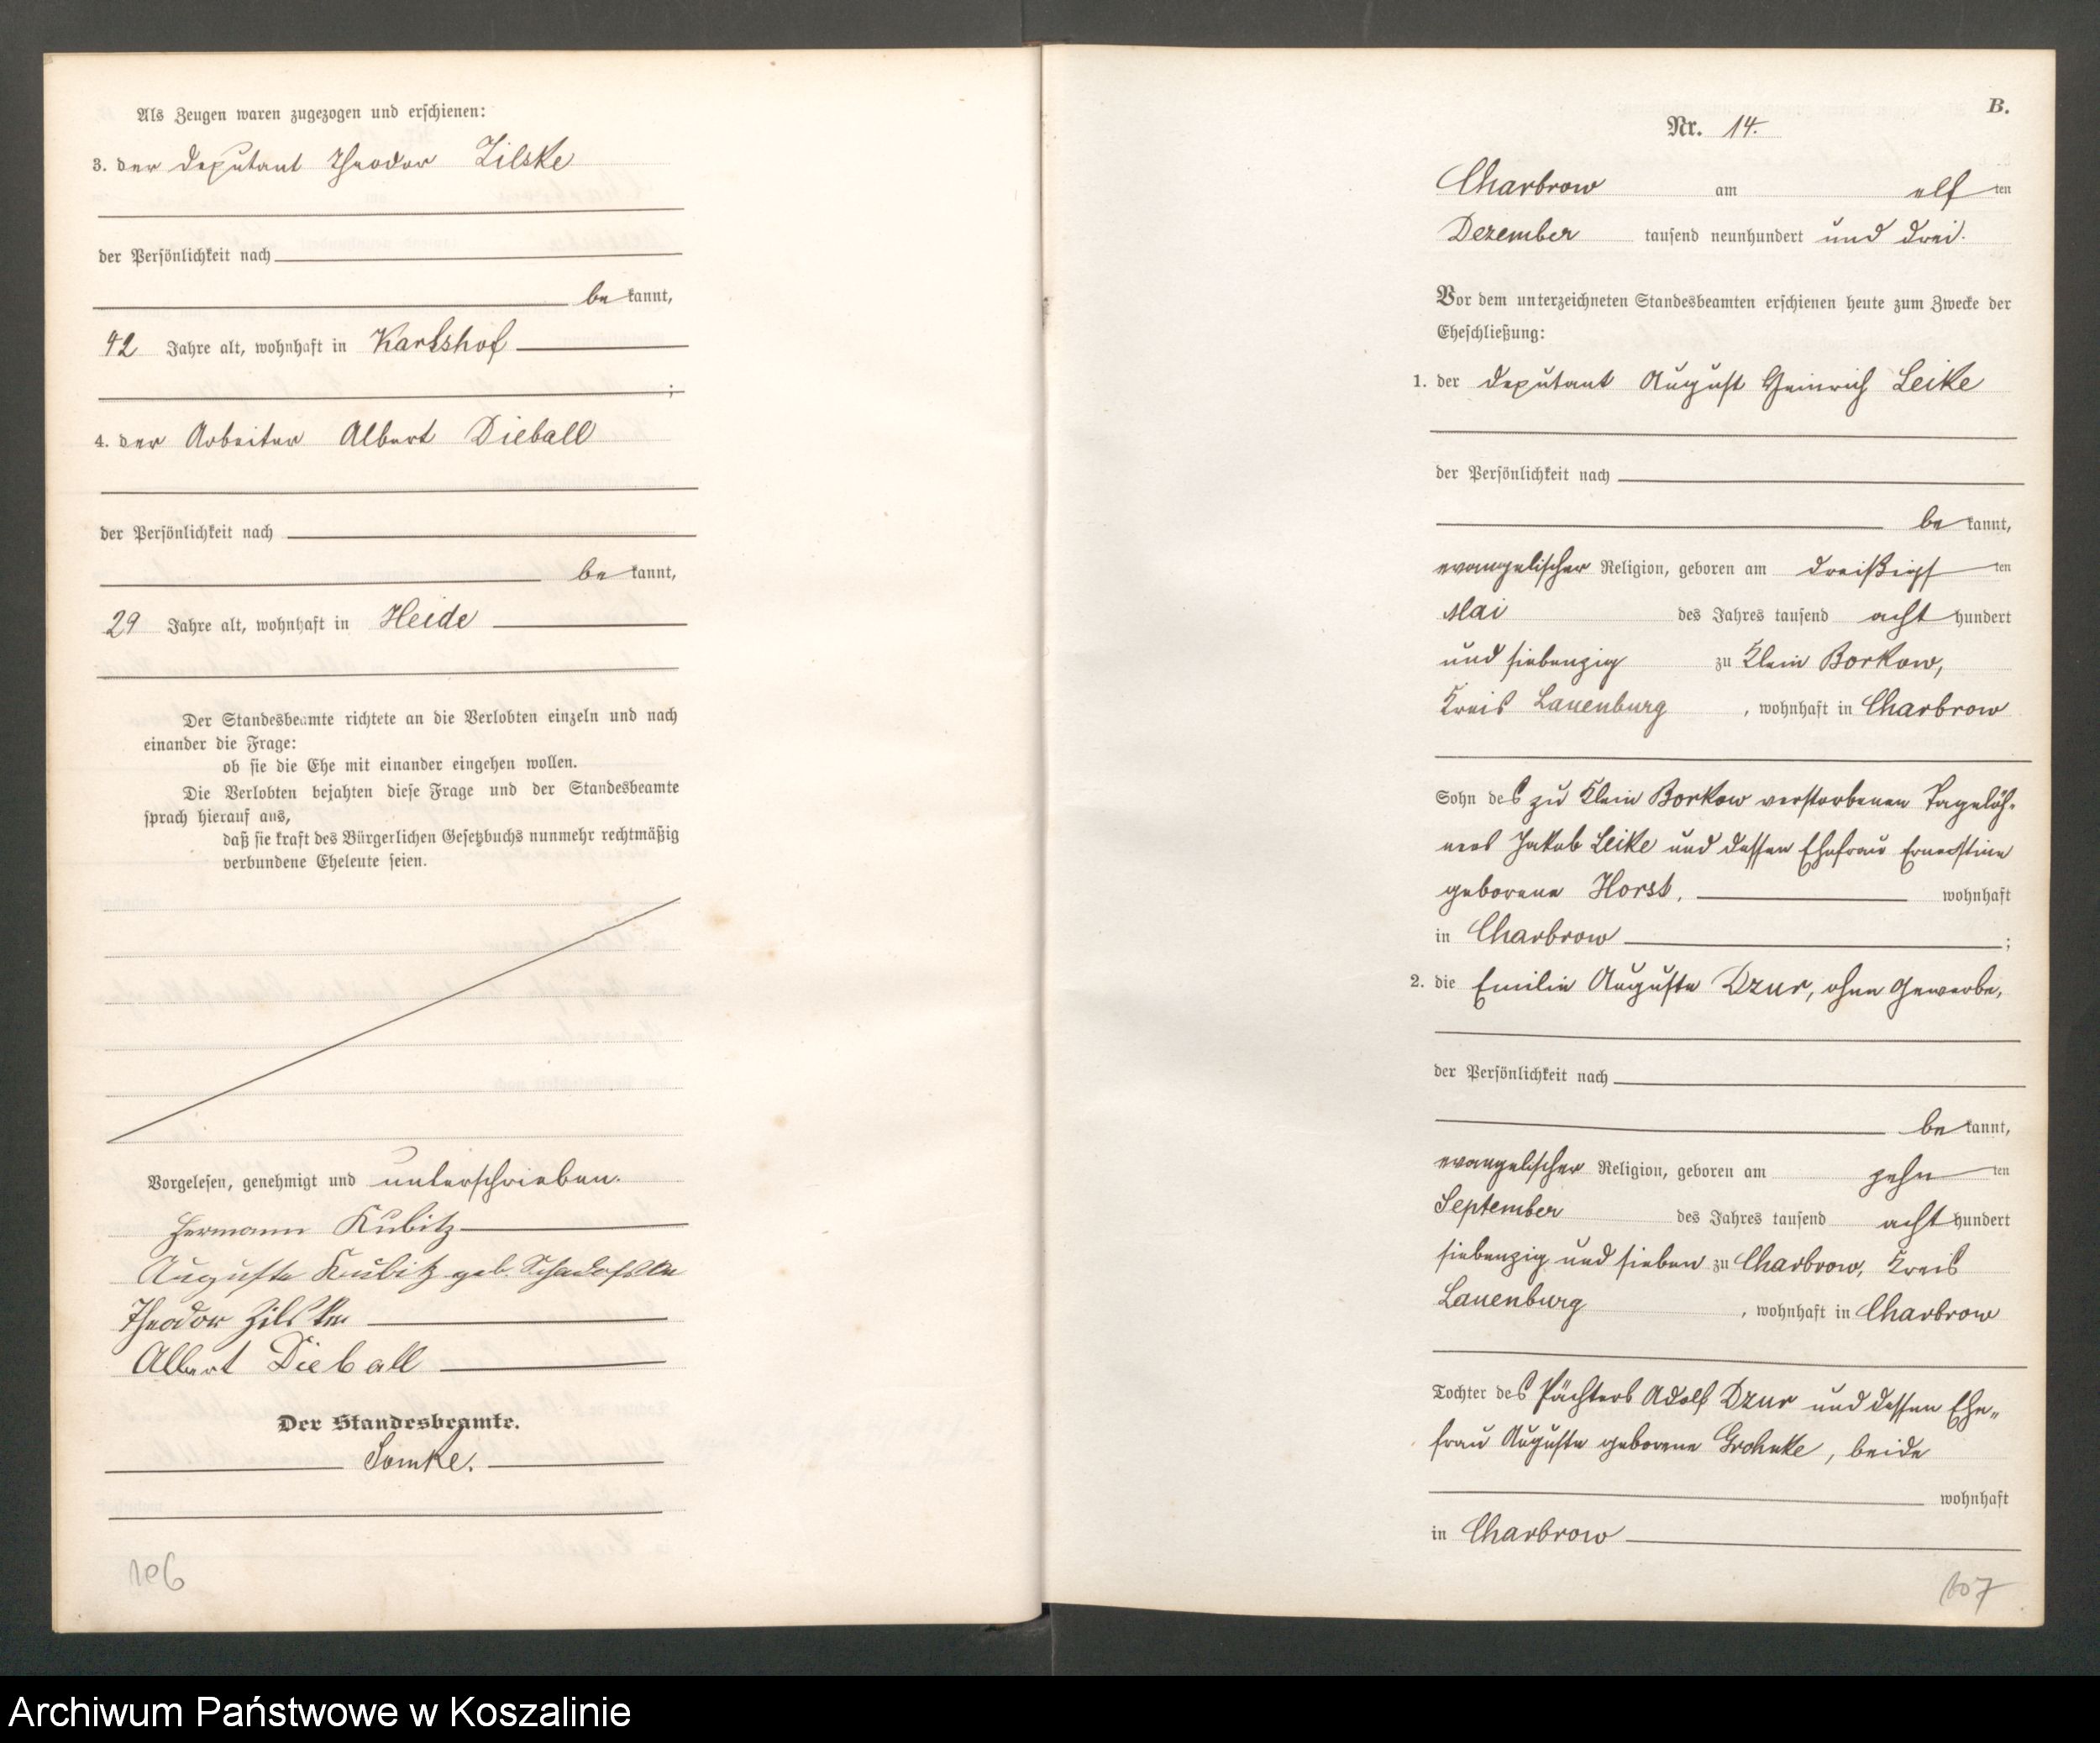 Als Zeugen waren zugezogen und erschienen:
3. der Deputant Theodor Zilske
der Persönlichkeit nach
be kannt,
42 Jahre alt, wohnhaft in Karlshof
;
4. der Arbeiter Albert Dieball
der Persönlichkeit nach
be kannt,
29 Jahre alt, wohnhaft in Heide
Der Standesbeamte richtete an die Verlobten einzeln und nach
einander die Frage:
ob sie die Ehe mit einander eingehen wollen.
Die Verlobten bejahten diese Frage und der Standesbeamte
sprach hierauf aus,
daß sie kraft des Bürgerlichen Gesetzbuchs nunmehr rechtmäßig
verbundene Eheleute seien.
Vorgelesen, genehmigt und unterschrieben.
Hermann Kubitz
Auguste Kubitz geb.
Theodor Zilske
Albert Dieball
Der Standesbeamte.
106
B.
Nr. 14.
Charbrow am elf ten
Dezember tausend neunhundert und drei.
Vor dem unterzeichneten Standesbeamten erschienen heute zum Zwecke der
Eheschließung:
1. der Deputant August Heinrich Leike
der Persönlichkeit nach
be kannt,
evangelischer Religion, geboren am dreißigst ten
Mai des Jahres tausend acht hundert
und siebenzig zu Klein Borkow,
Kreis Lauenburg , wohnhaft in Charbrow
Sohn des zu Klein Borkow verstorbenen Tagelöh-
ners Jakob Leike und dessen Ehefrau Ernestine
geborene Horst, wohnhaft
in Charbrow ;
2. die Emilie Auguste Dzur, ohne Gewerbe,
der Persönlichkeit nach
be kannt,
evangelischer Religion, geboren am zehn ten
September des Jahres tausend acht hundert
siebenzig und sieben zu Charbrow, Kreis
Lauenburg , wohnhaft in Charbrow
Tochter des Pächters Adolf Dzur und dessen Ehe-
frau Auguste geborene Grohnke, beide
wohnhaft
in Charbrow
107
Archiwum Państwowe w Koszalinie